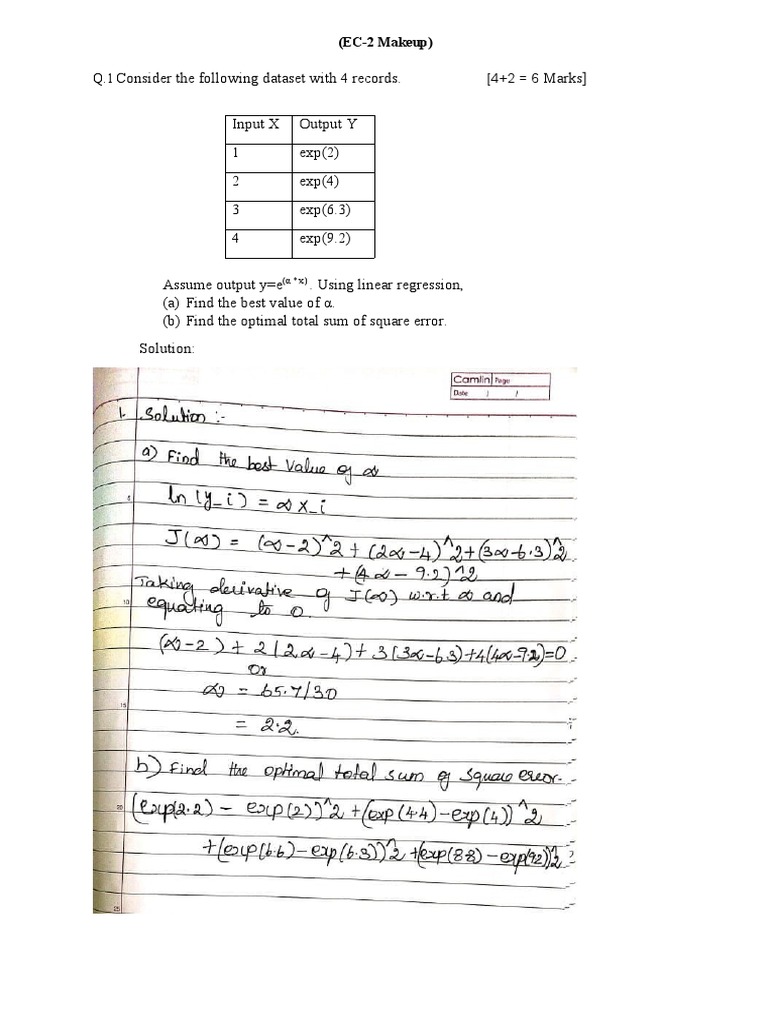 (EC-2 Makeup)
Q.1 Consider the following dataset with 4 records. [4+2 = 6 Marks]
Input X Output Y
1 exp(2)
2 exp(4)
3 exp(6.3)
4 exp(9.2)
Assume output y=e^(α *x). Using linear regression,
(a) Find the best value of α.
(b) Find the optimal total sum of square error.
Solution:
Camlin Page
Date / /
1. Solution :-
a) Find the best value of α
5
ln (y_i) = α x_i
J(α) = (α-2)^2 + (2α-4)^2+(3α-6.3)^2
+(4α-9.2)^2
Taking derivative of J(α) w.r.t α and
10
equating to 0.
(α-2) + 2(2α-4) + 3(3α-6.3)+4(4α-9.2)=0
or
α = 65.7/30
15
= 2.2.
b) Find the optimal total sum of square error.
20
(exp(2.2) - exp(2))^2 + (exp(4.4)-exp(4))^2
+(exp(6.6)-exp(6.3))^2 +(exp(8.8)-exp(9.2))^2
25